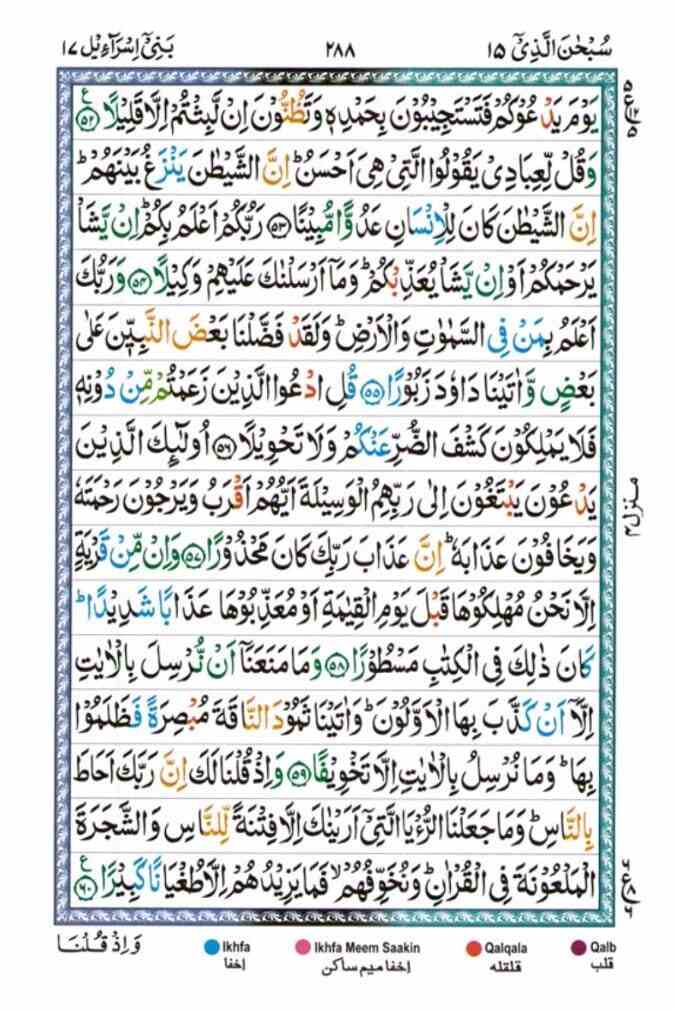 سُبْحٰنَ الَّذِیْۤ ١٥
٢٨٨
بَنِیْۤ اِسْرَآءِیْل ١٧
یَوْمَ یَدْعُوْكُمْ فَتَسْتَجِیْبُوْنَ بِحَمْدِهٖ وَتَظُنُّوْنَ اِنْ لَّبِثْتُمْ اِلَّا قَلِیْلًا ﴿٥٢﴾ ع
وَقُلْ لِّعِبَادِیْ یَقُوْلُوا الَّتِیْ هِیَ اَحْسَنُ ؕ اِنَّ الشَّیْطٰنَ یَنْزَغُ بَیْنَهُمْ ؕ
اِنَّ الشَّیْطٰنَ كَانَ لِلْاِنْسَانِ عَدُوًّا مُّبِیْنًا ﴿٥٣﴾ رَبُّكُمْ اَعْلَمُ بِكُمْ ؕ اِنْ یَّشَاْ
یَرْحَمْكُمْ اَوْ اِنْ یَّشَاْ یُعَذِّبْكُمْ ؕ وَمَاۤ اَرْسَلْنٰكَ عَلَیْهِمْ وَكِیْلًا ﴿٥٤﴾ وَرَبُّكَ
اَعْلَمُ بِمَنْ فِی السَّمٰوٰتِ وَالْاَرْضِ ؕ وَلَقَدْ فَضَّلْنَا بَعْضَ النَّبِیّٖنَ عَلٰی
بَعْضٍ وَّاٰتَیْنَا دَاوٗدَ زَبُوْرًا ﴿٥٥﴾ قُلِ ادْعُوا الَّذِیْنَ زَعَمْتُمْ مِّنْ دُوْنِهٖ
فَلَا یَمْلِكُوْنَ كَشْفَ الضُّرِّ عَنْكُمْ وَلَا تَحْوِیْلًا ﴿٥٦﴾ اُولٰٓىِٕكَ الَّذِیْنَ
یَدْعُوْنَ یَبْتَغُوْنَ اِلٰی رَبِّهِمُ الْوَسِیْلَةَ اَیُّهُمْ اَقْرَبُ وَیَرْجُوْنَ رَحْمَتَهٗ
وَیَخَافُوْنَ عَذَابَهٗ ؕ اِنَّ عَذَابَ رَبِّكَ كَانَ مَحْذُوْرًا ﴿٥٧﴾ وَاِنْ مِّنْ قَرْیَةٍ
اِلَّا نَحْنُ مُهْلِكُوْهَا قَبْلَ یَوْمِ الْقِیٰمَةِ اَوْ مُعَذِّبُوْهَا عَذَابًا شَدِیْدًا ؕ
كَانَ ذٰلِكَ فِی الْكِتٰبِ مَسْطُوْرًا ﴿٥٨﴾ وَمَا مَنَعَنَاۤ اَنْ نُّرْسِلَ بِالْاٰیٰتِ
اِلَّاۤ اَنْ كَذَّبَ بِهَا الْاَوَّلُوْنَ ؕ وَاٰتَیْنَا ثَمُوْدَ النَّاقَةَ مُبْصِرَةً فَظَلَمُوْا
بِهَا ؕ وَمَا نُرْسِلُ بِالْاٰیٰتِ اِلَّا تَخْوِیْفًا ﴿٥٩﴾ وَاِذْ قُلْنَا لَكَ اِنَّ رَبَّكَ اَحَاطَ
بِالنَّاسِ ؕ وَمَا جَعَلْنَا الرُّءْیَا الَّتِیْۤ اَرَیْنٰكَ اِلَّا فِتْنَةً لِّلنَّاسِ وَالشَّجَرَةَ
الْمَلْعُوْنَةَ فِی الْقُرْاٰنِ ؕ وَنُخَوِّفُهُمْ ۙ فَمَا یَزِیْدُهُمْ اِلَّا طُغْیَانًا كَبِیْرًا ﴿٦٠﴾ ع
منزل ٤
وَاِذْ قُلْنَا
Ikhfa
اخفا
Ikhfa Meem Saakin
اخفا میم ساکن
Qalqala
قلقله
Qalb
قلب